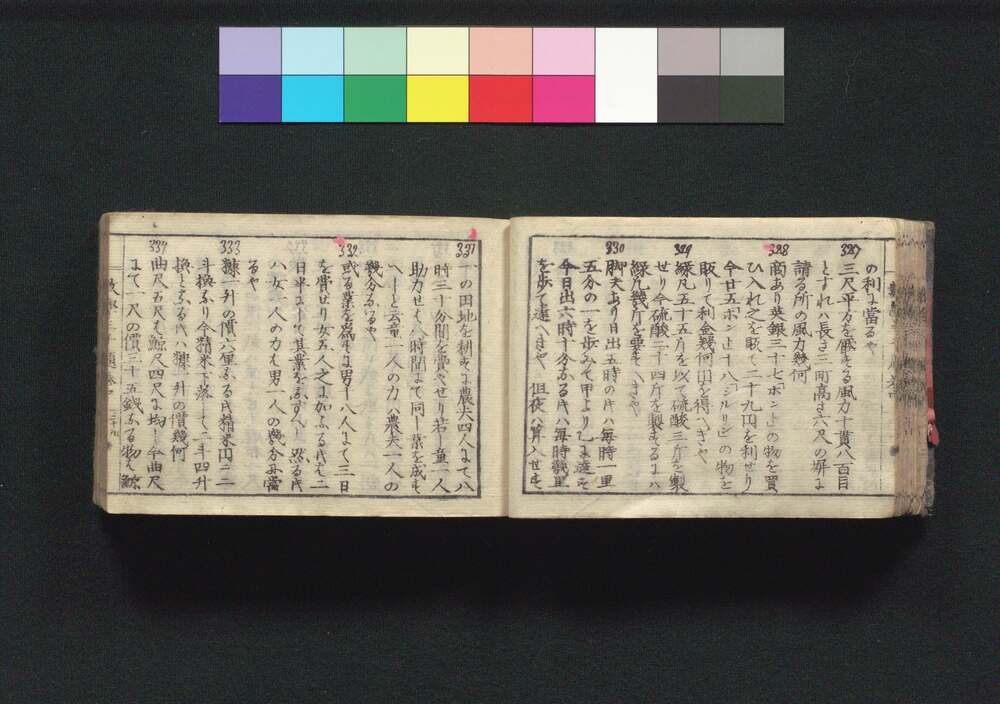 の利に當るや
327
三尺平方を壓する風力十貫八百目
とすれハ長さ三間高さ六尺の塀に
請る所の風力幾何
328
商あり英銀三十七「ポンド」の物を買
ひ入れ之を販て二十九円を利せり
今廿五「ポンド」十八「シルリン」の物を
販りて利金幾何円を得へきや
329
緑凡五十五斤を以て硫酸三斤を製
せり今硫酸二十四斤を製するにハ
緑凡幾斤を要すへきや
330
脚夫あり日出五時の氏ハ毎時一里
五分の一を歩みて甲より乙に達す
今日出六時十分なる氏ハ毎時幾里
を歩て達へきや 但夜ハ算入せす
331
一の田地を耕すに農夫四人にて八
時三十分間を費やせり若し童一人
助力せも八時間にて同し業を成す
へしと云童一人の力ハ農夫一人の
幾分なるや
332
或る業を爲すに男十八人にて三日
を費せり女五人之に加ふる氏も二
日半にして其業をふすへし然る氏
ハ女一人の力も男一人の幾分に當
るや
333
糠一升の價六厘なる氏精米円ニ二
斗換ふり今精米下落して二斗四升
換とふる氏ハ糠一升の價幾何
334
曲尺五尺も鯨尺四尺に均し今曲尺
にて一尺の價三十五錢なる物も鯨